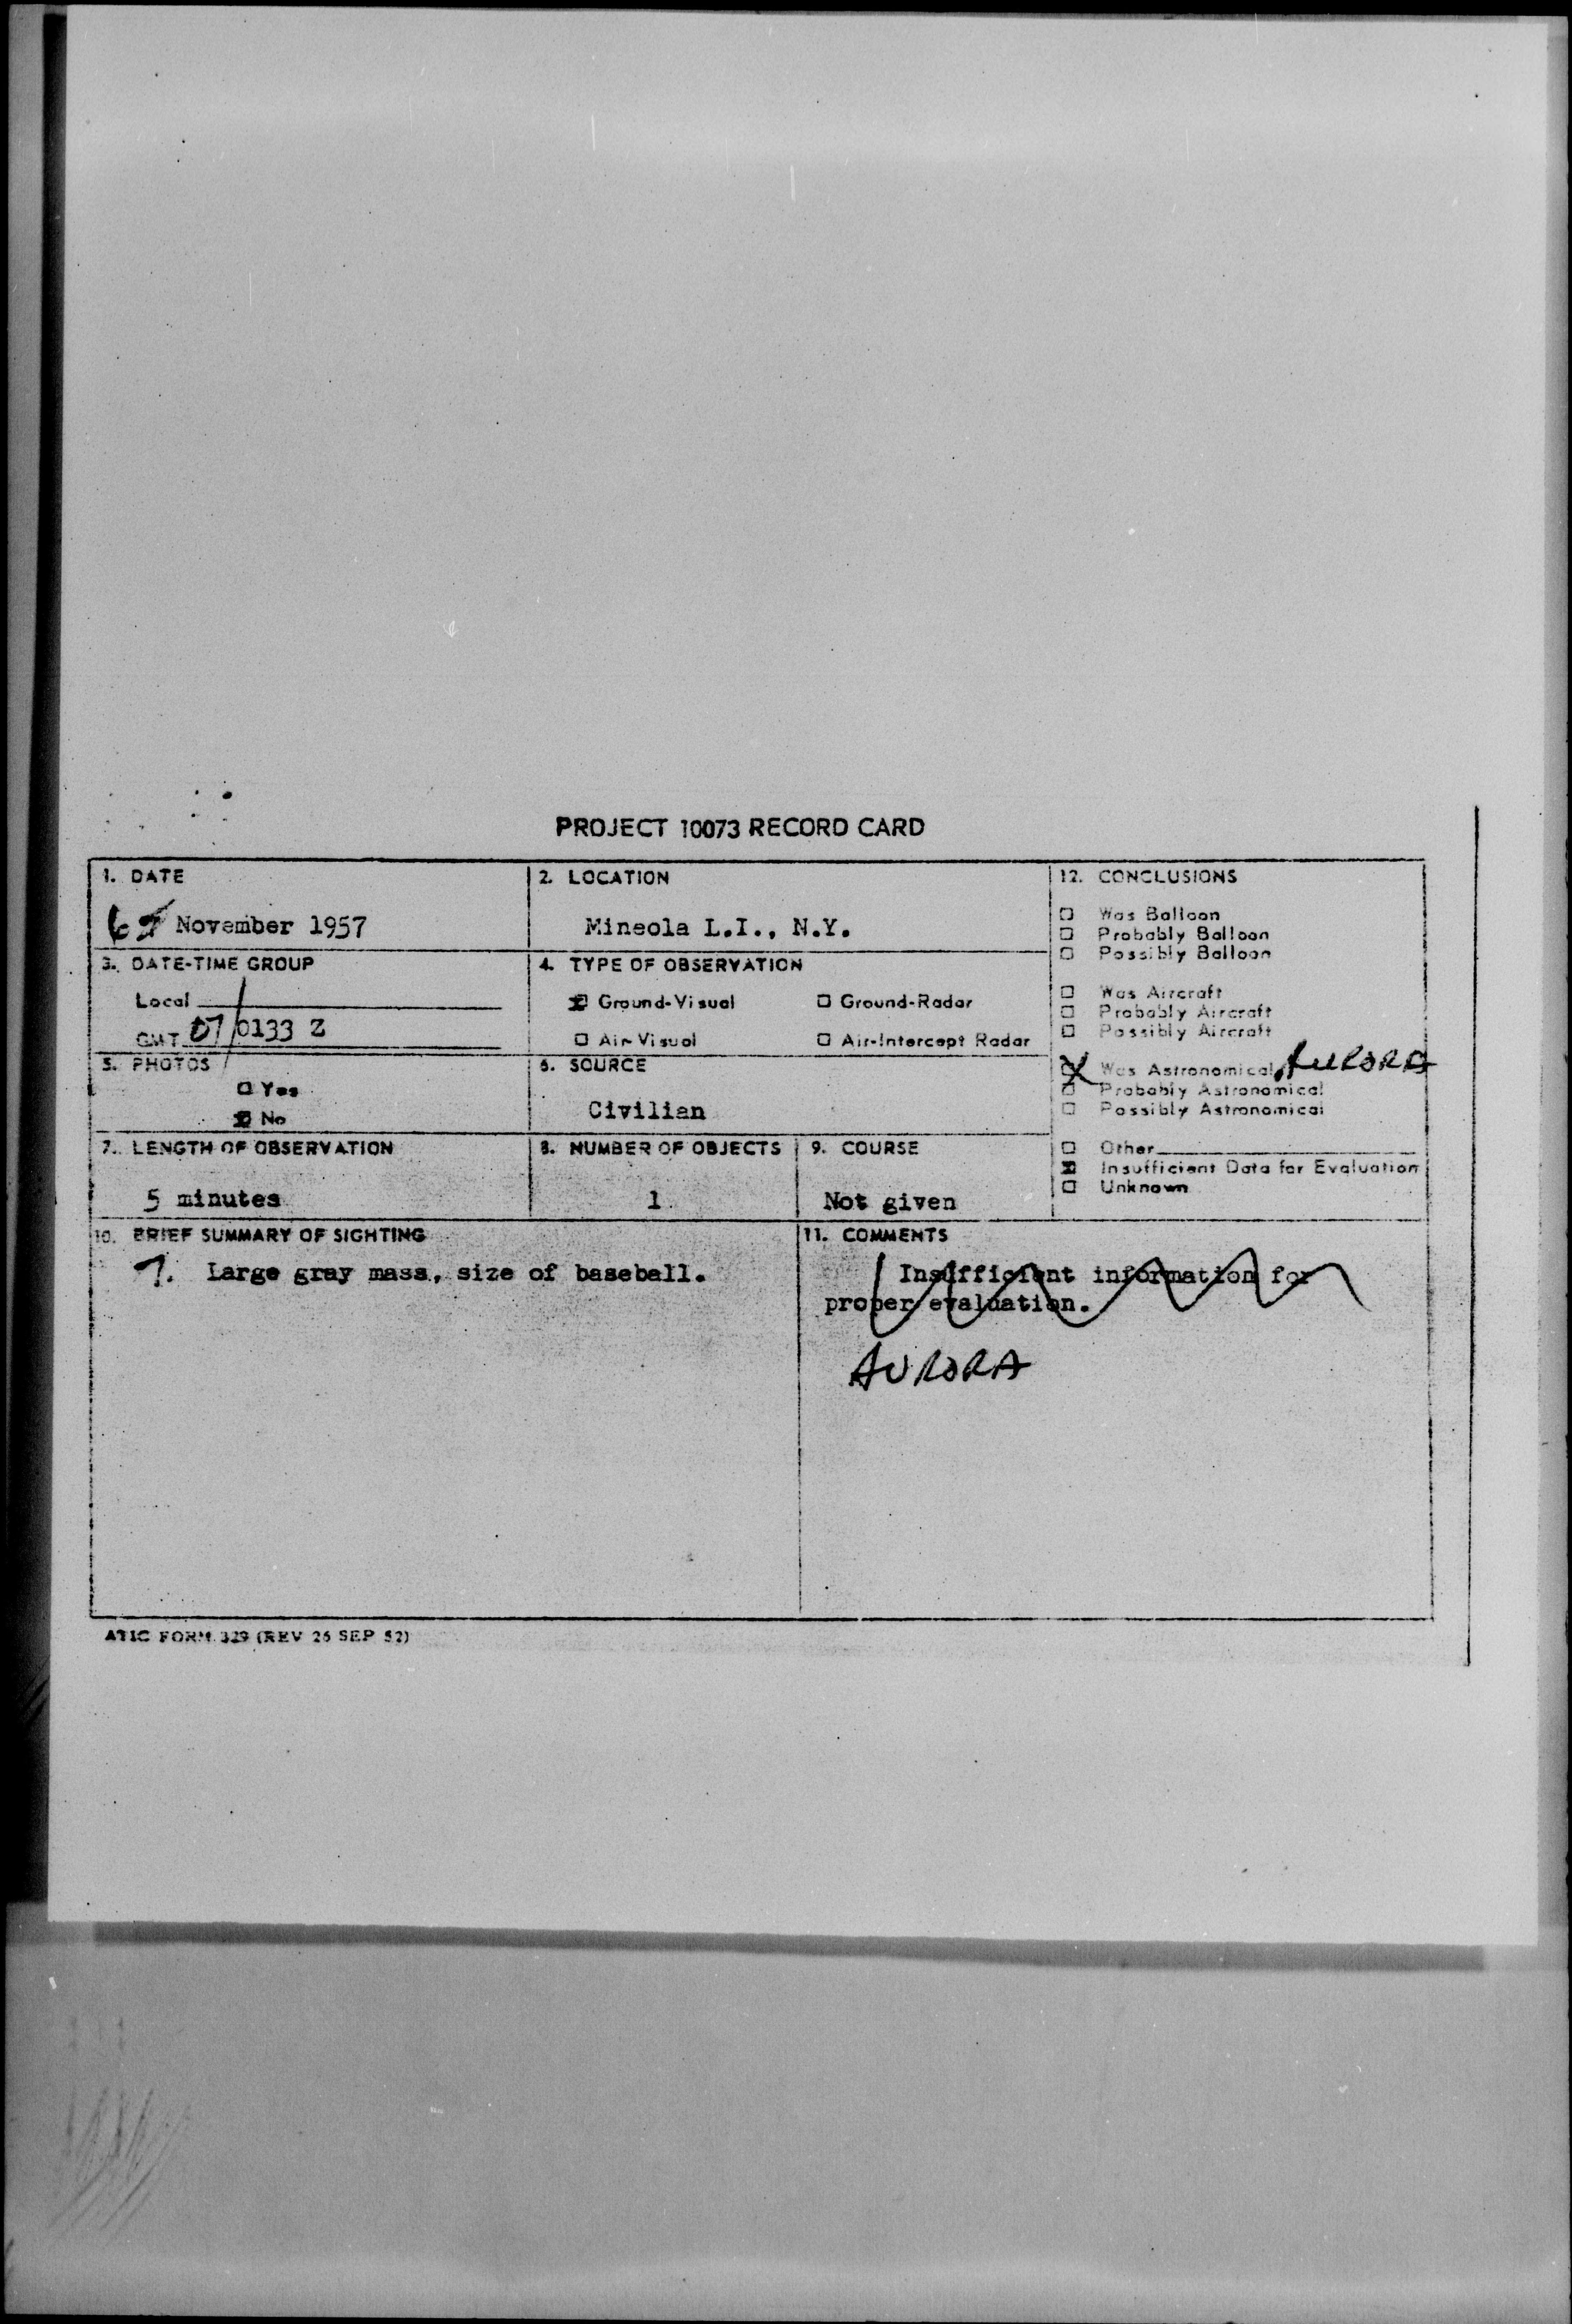 PROJECT 10073 RECORD CARD
1. DATE
6 November 1957
2. LOCATION
Mineola L.I., N.Y.
3. DATE-TIME GROUP
Local
GMT 07/0133 Z
4. TYPE OF OBSERVATION
☒ Ground-Visual ☐ Ground-Radar
☐ Air-Visual ☐ Air-Intercept Radar
5. PHOTOS
☐ Yes
☒ No
6. SOURCE
Civilian
7. LENGTH OF OBSERVATION
5 minutes
8. NUMBER OF OBJECTS
1
9. COURSE
Not given
10. BRIEF SUMMARY OF SIGHTING
7. Large gray mass, size of baseball.
11. COMMENTS
Insufficient information for
proper evaluation.
AURORA
12. CONCLUSIONS
☐ Was Balloon
☐ Probably Balloon
☐ Possibly Balloon
☐ Was Aircraft
☐ Probably Aircraft
☐ Possibly Aircraft
☒ Was Astronomical AURORA
☐ Probably Astronomical
☐ Possibly Astronomical
☐ Other
☒ Insufficient Data for Evaluation
☐ Unknown
ATIC FORM 329 (REV 26 SEP 52)